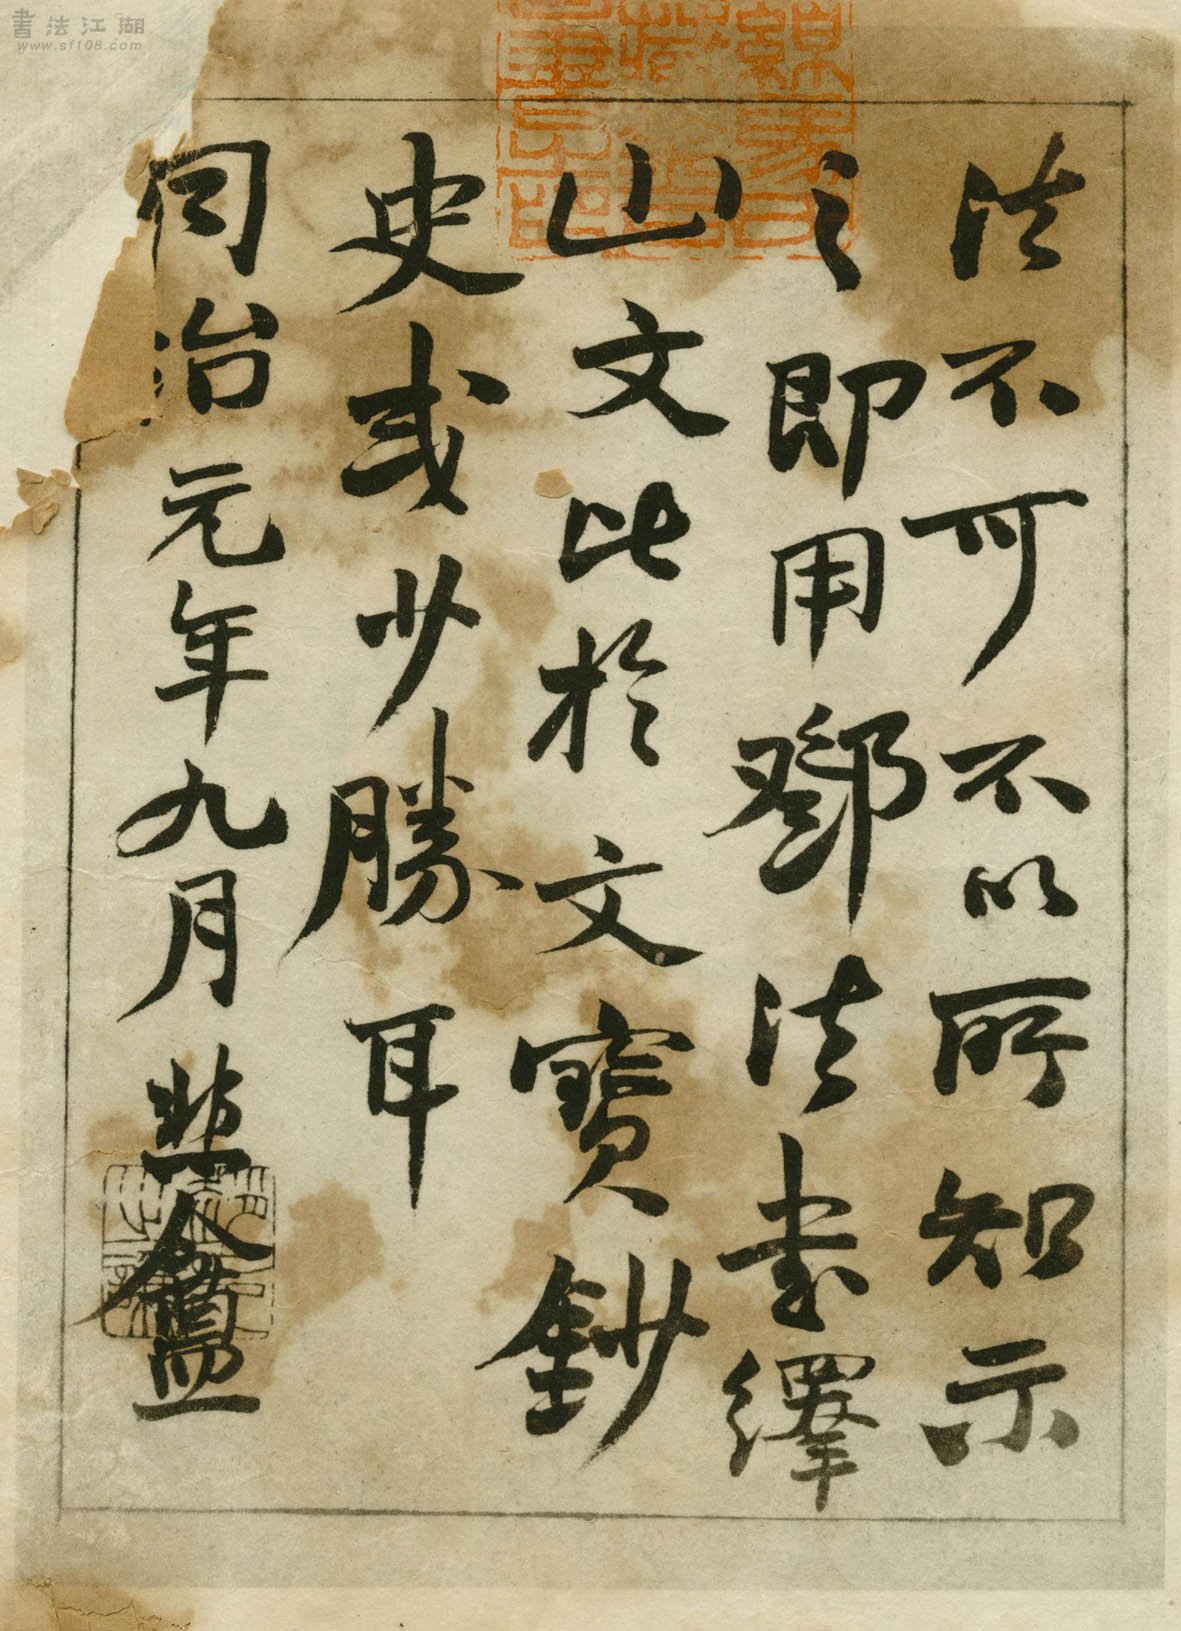 書法江湖
www.sf108.com
法不可不以所知示
之即用鄧法書繹
山文比於文寶鈔
史或少勝耳
同治元年九月悲盦